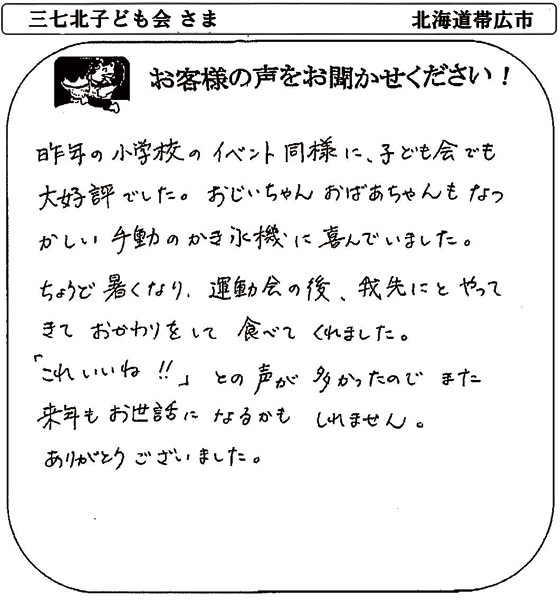 三七北子ども会 さま　北海道帯広市
お客様の声をお聞かせください！
昨年の小学校のイベント同様に、子ども会でも
大好評でした。おじいちゃんおばあちゃんもなつ
かしい手動のかき氷機に喜んでいました。
ちょうど暑くなり、運動会の後、我先にとやって
きておかわりをして食べてくれました。
「これいいね!!」との声が多かったのでまた
来年もお世話になるかもしれません。
ありがとうございました。